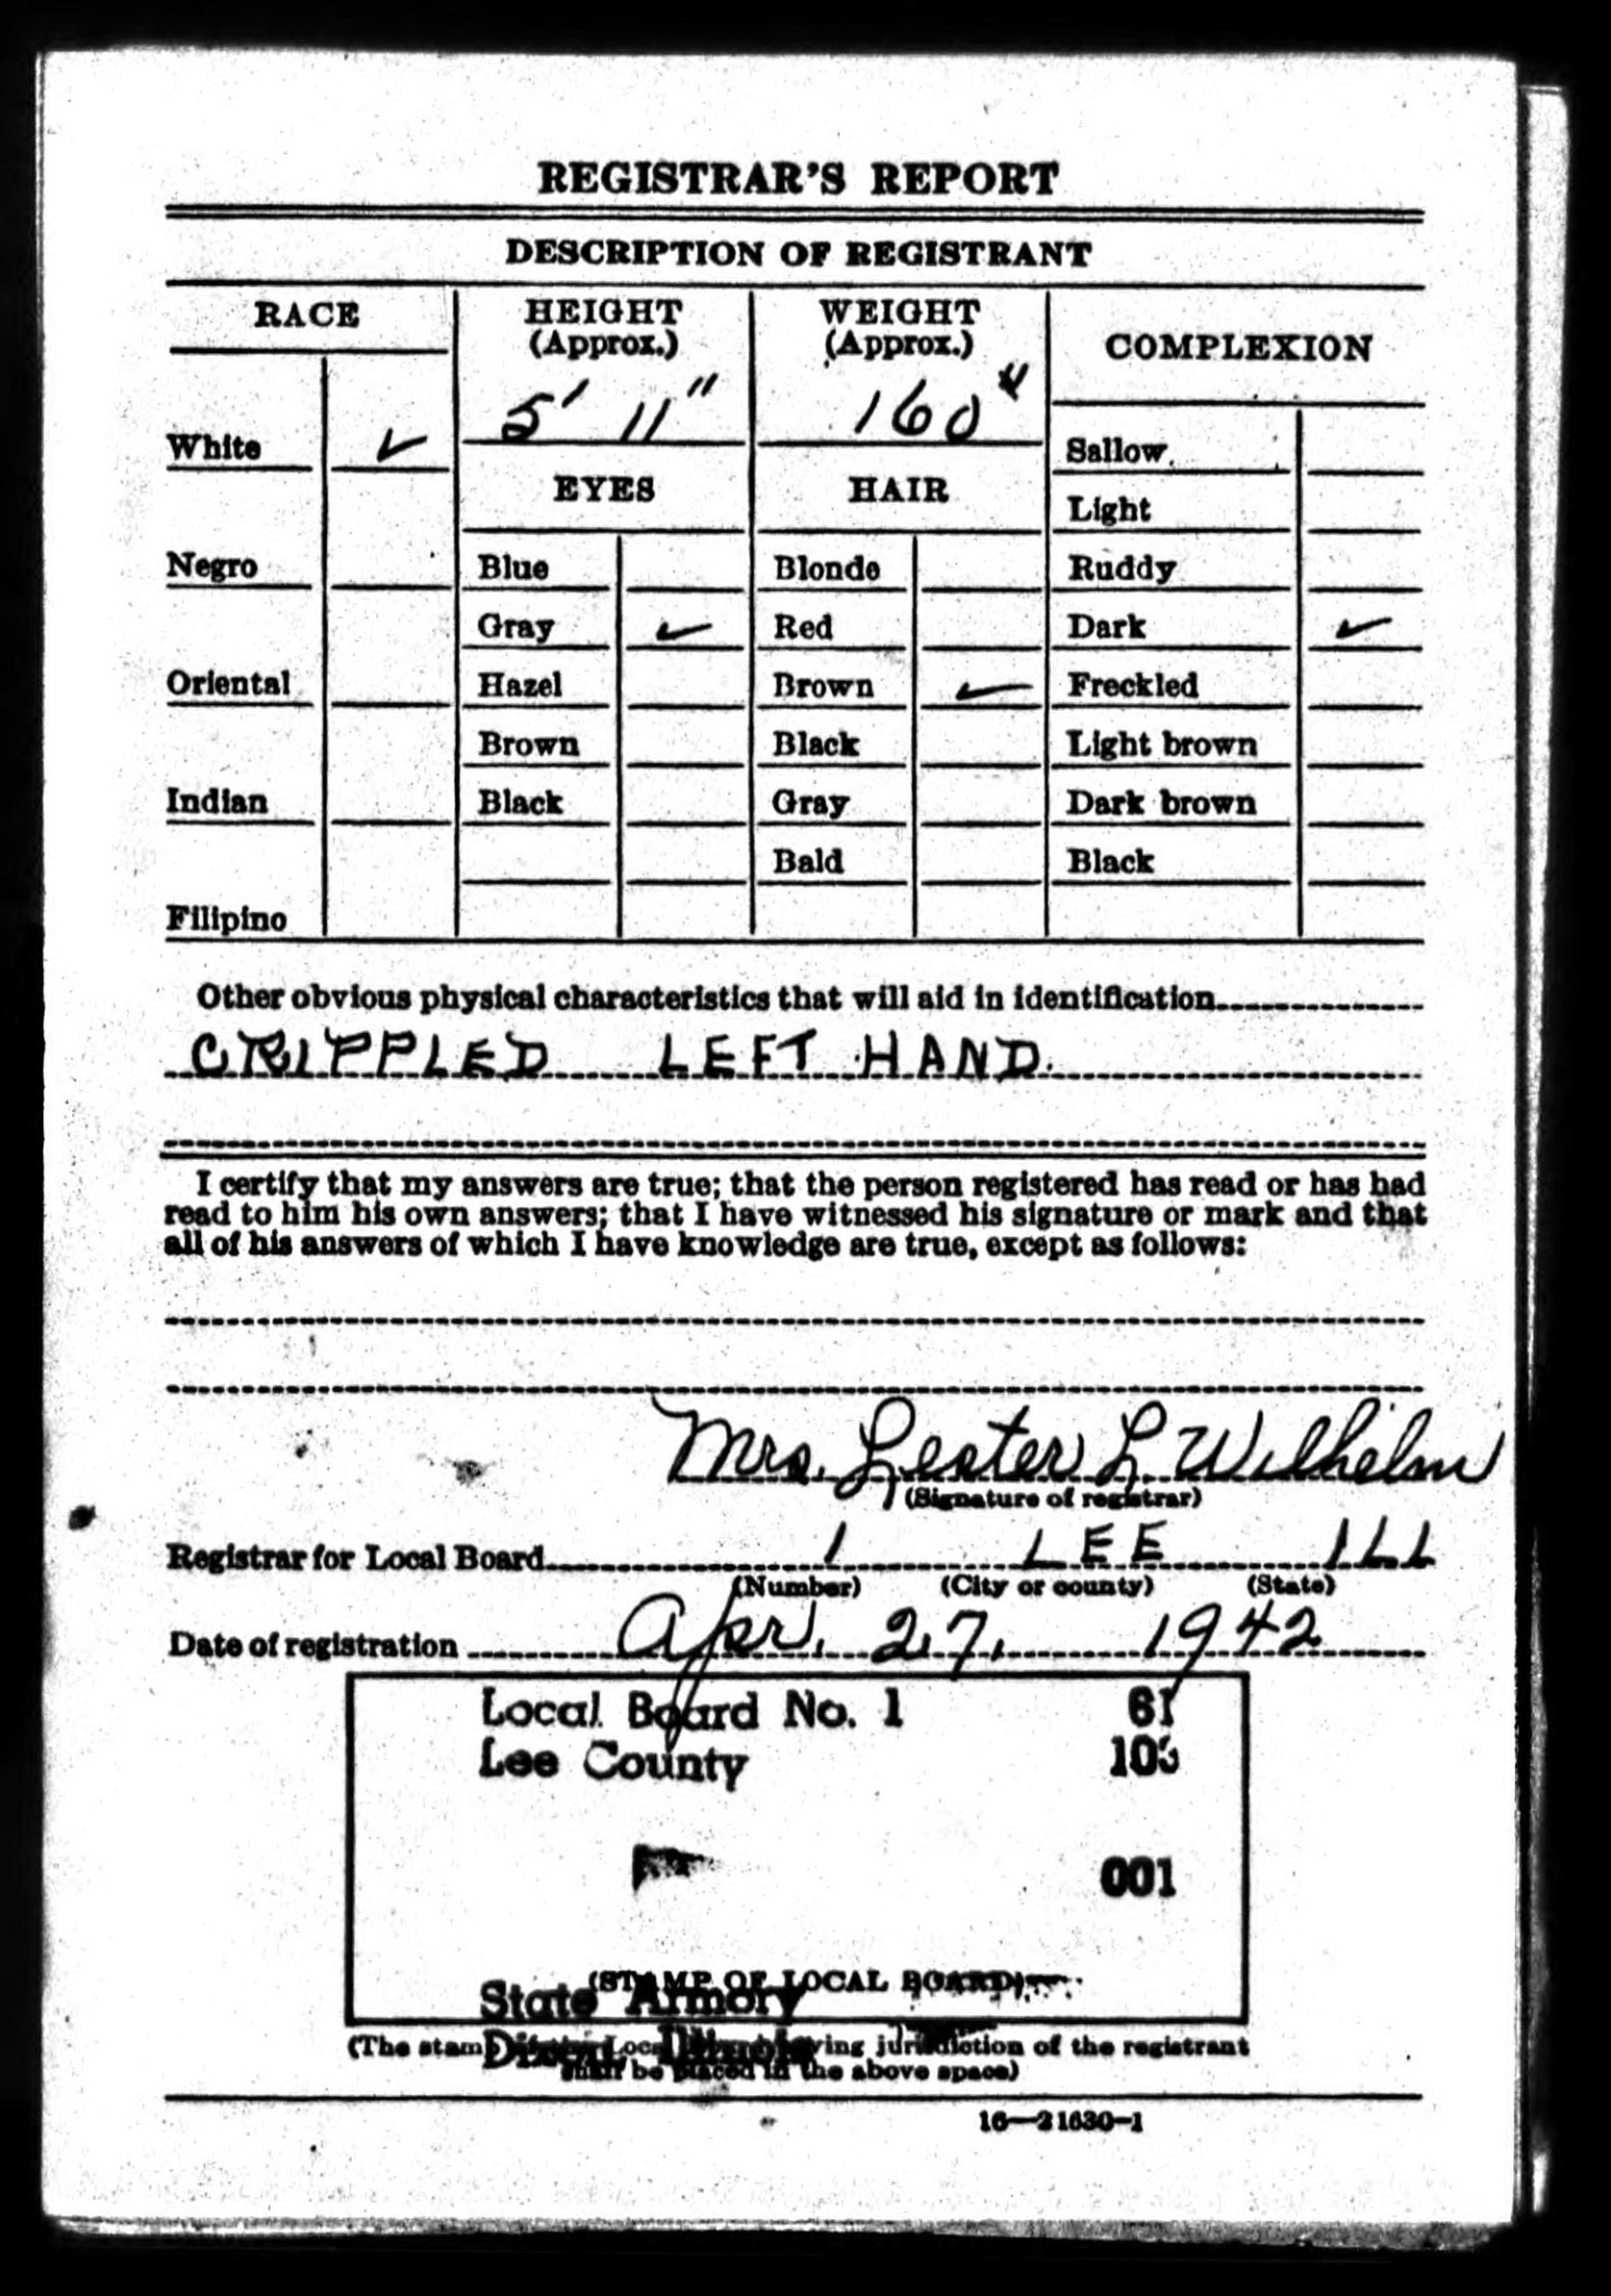 REGISTRAR'S REPORT
DESCRIPTION OF REGISTRANT
RACE HEIGHT (Approx.) WEIGHT (Approx.) COMPLEXION
5' 11" 160#
White ✓ Sallow
EYES HAIR
Light
Negro Blue Blonde Ruddy
Gray ✓ Red Dark ✓
Oriental Hazel Brown ✓ Freckled
Brown Black Light brown
Indian Black Gray Dark brown
Bald Black
Filipino
Other obvious physical characteristics that will aid in identification
CRIPPLED LEFT HAND.
I certify that my answers are true; that the person registered has read or has had
read to him his own answers; that I have witnessed his signature or mark and that
all of his answers of which I have knowledge are true, except as follows:
Mrs. Lester L. Wilhelm
(Signature of registrar)
Registrar for Local Board 1 LEE ILL
(Number) (City or county) (State)
Date of registration Apr. 27, 1942
Local Board No. 1 61
Lee County 103
001
(STAMP OF LOCAL BOARD)
State Armory
Dixon, Illinois
(The stamp of the Local Board having jurisdiction of the registrant
shall be placed in the above space)
16—21630-1